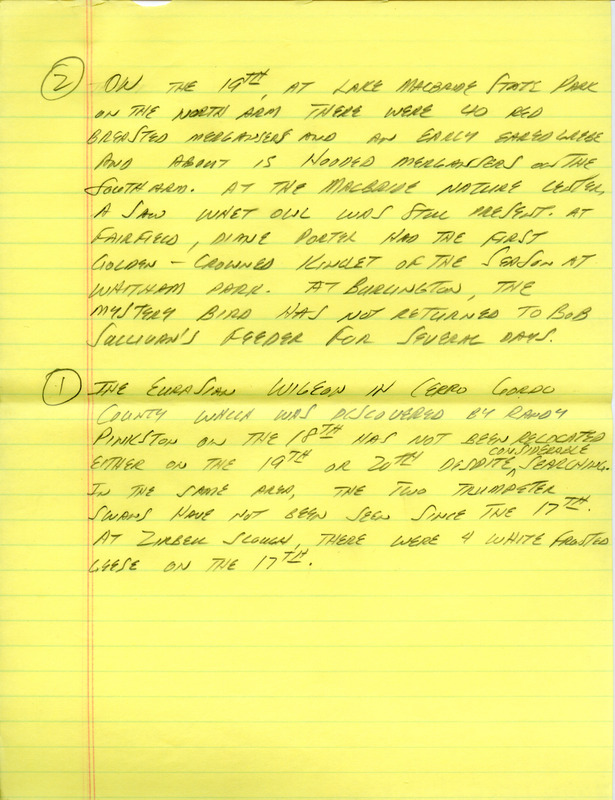 ② ON THE 19TH, AT LAKE MACBRIDE STATE PARK
ON THE NORTH ARM THERE WERE 40 RED
BREASTED MERGANSERS AND AN EARLY EARED GREBE
AND ABOUT 15 HOODED MERGANSERS ON THE
SOUTH ARM. AT THE MACBRIDE NATURE CENTER,
A SAW WHET OWL WAS STILL PRESENT. AT
FAIRFIELD, DIANE PORTER HAD THE FIRST
GOLDEN-CROWNED KINGLET OF THE SEASON AT
WHITHAM PARK. AT BURLINGTON, THE
MYSTERY BIRD HAS NOT RETURNED TO BOB
SULLIVAN'S FEEDER FOR SEVERAL DAYS.
① THE EURASIAN WIGEON IN CERRO GORDO
COUNTY WHICH WAS DISCOVERED BY RANDY
PINKSTON ON THE 18TH HAS NOT BEEN RELOCATED
EITHER ON THE 19TH OR 20TH DESPITE CONSIDERABLE SEARCHING.
IN THE SAME AREA, THE TWO TRUMPETER
SWANS HAVE NOT BEEN SEEN SINCE THE 17TH.
AT ZIRBEL SLOUGH, THERE WERE 4 WHITE FRONTED
GEESE ON THE 17TH.